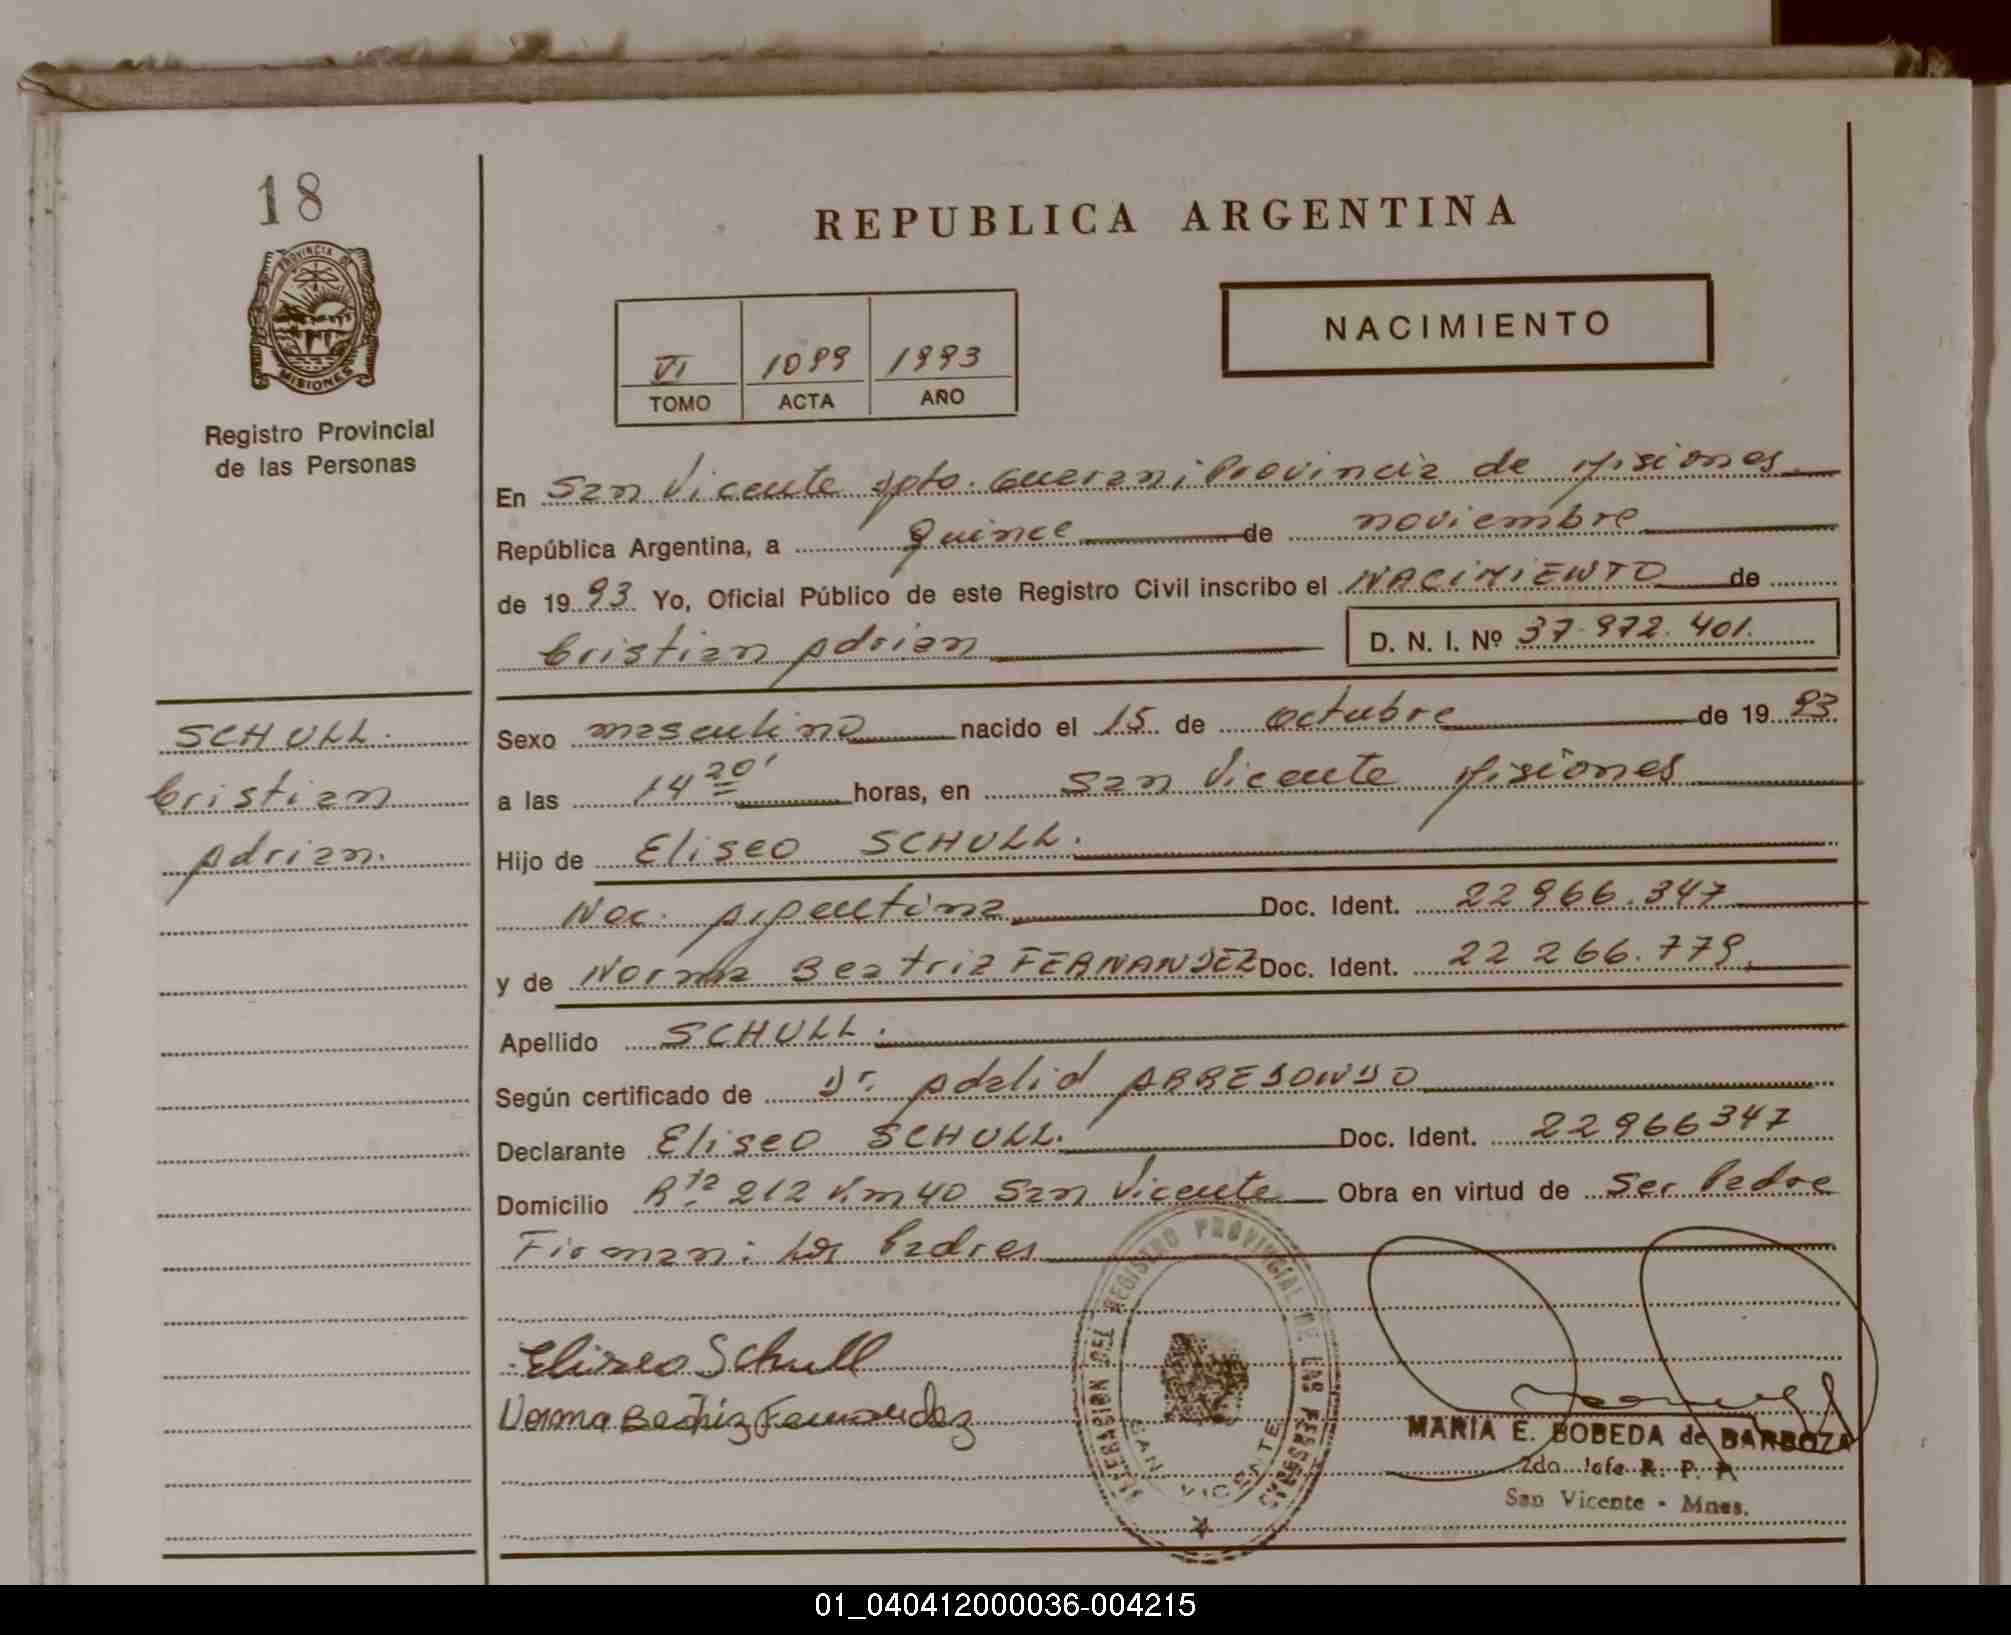 18
REPUBLICA ARGENTINA
PROVINCIA DE
MISIONES
Registro Provincial
de las Personas
VI 1099 1993
TOMO ACTA AÑO
NACIMIENTO
En San Vicente Dpto. Guarani Provincia de Misiones
República Argentina, a quince de noviembre
de 1993 Yo, Oficial Público de este Registro Civil inscribo el NACIMIENTO de
Cristian Adrian D. N. I. Nº 37.972.401.
SCHULL.
Cristian
Adrian.
Sexo masculino nacido el 15 de octubre de 1993
a las 14 20' horas, en San Vicente Misiones
Hijo de Eliseo SCHULL.
Nac. Argentina Doc. Ident. 22966.347
y de Norma Beatriz FERNANDEZ Doc. Ident. 22 266.779
Apellido SCHULL.
Según certificado de Dr. Adalid ARREDONDO
Declarante Eliseo SCHULL. Doc. Ident. 22966347
Domicilio Rta 212 Km 40 San Vicente Obra en virtud de Ser Padre
Firman: Los Padres
Eliseo Schull
Norma Beatriz Fernandez
DEL REGISTRO PROVINCIAL DE LAS PERSONAS
SAN VICENTE
MARIA E. BOBEDA de BARBOZA
2do. Jefe R. P. P.
San Vicente - Mnes.
01_040412000036-004215